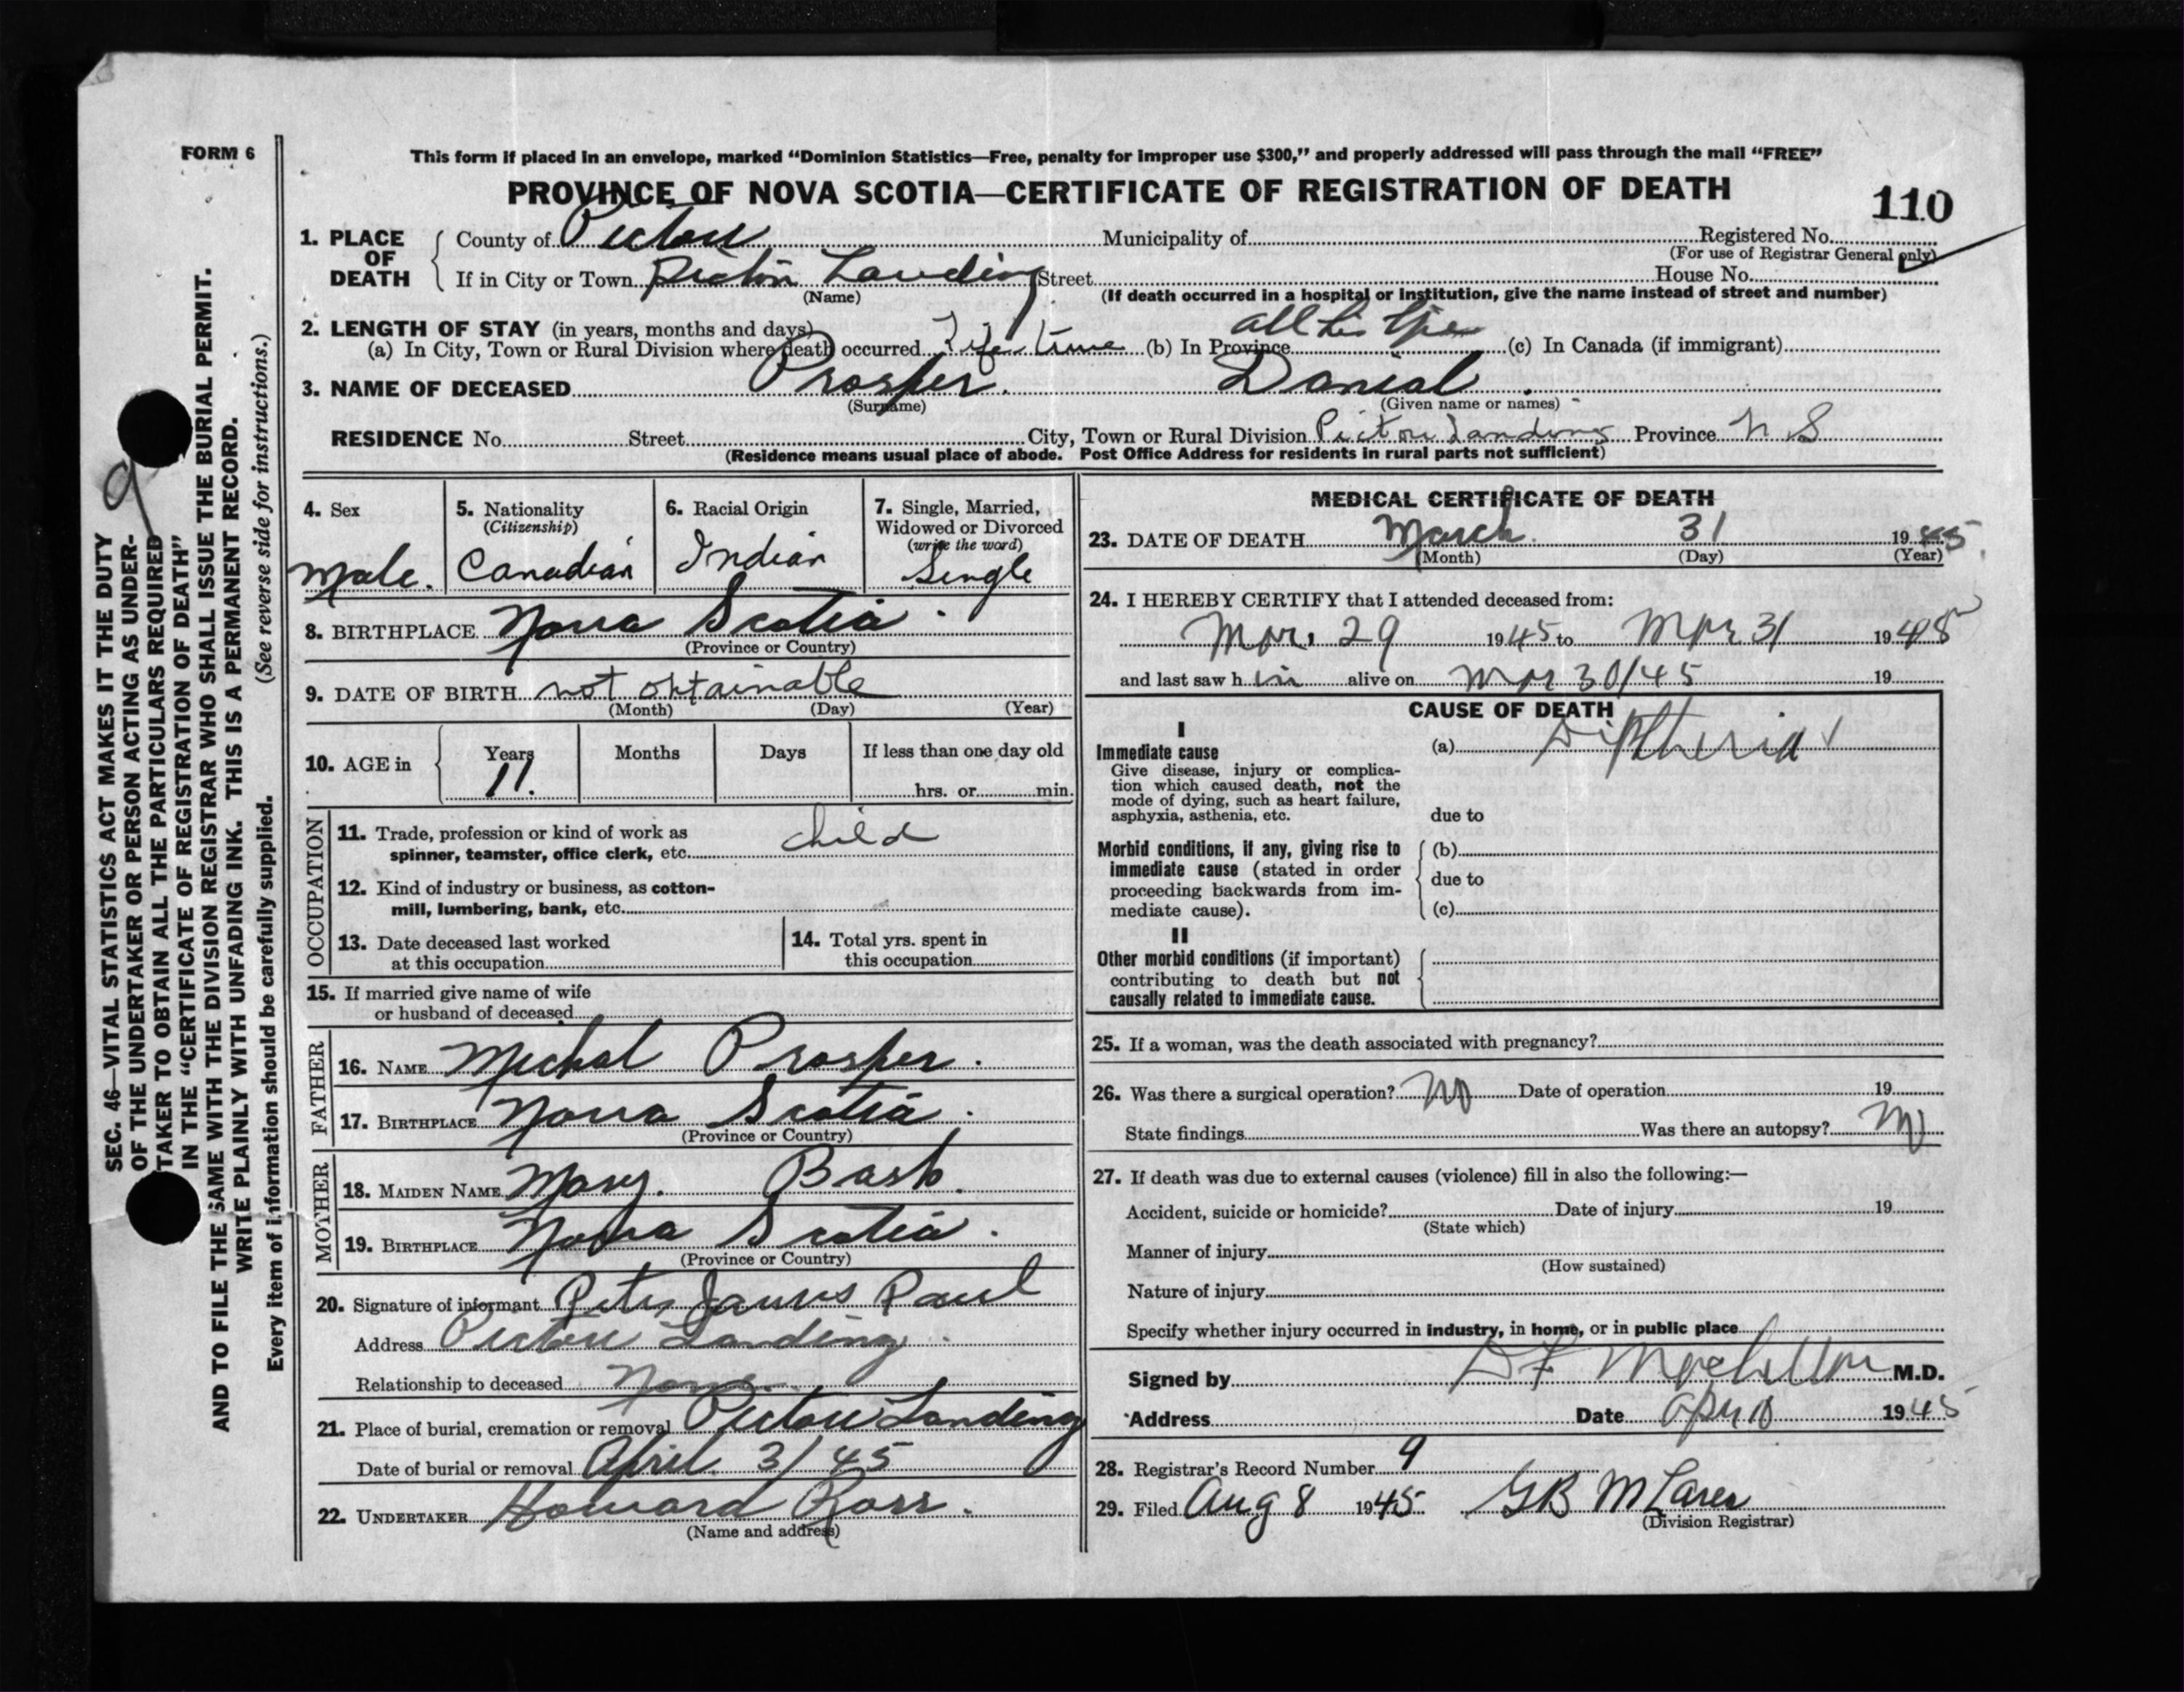 FORM 6
This form if placed in an envelope, marked "Dominion Statistics—Free, penalty for improper use $300," and properly addressed will pass through the mail "FREE"
PROVINCE OF NOVA SCOTIA—CERTIFICATE OF REGISTRATION OF DEATH
110
1. PLACE OF DEATH County of Pictou Municipality of Registered No.
(For use of Registrar General only)
If in City or Town Picton Landing Street House No.
(Name) (If death occurred in a hospital or institution, give the name instead of street and number)
2. LENGTH OF STAY (in years, months and days)
(a) In City, Town or Rural Division where death occurred Life time (b) In Province all his life (c) In Canada (if immigrant)
3. NAME OF DECEASED Prosper. Danial.
(Surname) (Given name or names)
RESIDENCE No. Street City, Town or Rural Division Pictou Landing Province N S
(Residence means usual place of abode. Post Office Address for residents in rural parts not sufficient)
4. Sex Male.
5. Nationality (Citizenship) Canadian
6. Racial Origin Indian
7. Single, Married, Widowed or Divorced (write the word) Single
8. BIRTHPLACE Nova Scotia.
(Province or Country)
9. DATE OF BIRTH not obtainable
(Month) (Day) (Year)
10. AGE in Years 11. Months Days If less than one day old
hrs. or min.
OCCUPATION
11. Trade, profession or kind of work as
spinner, teamster, office clerk, etc. child
12. Kind of industry or business, as cotton-
mill, lumbering, bank, etc.
13. Date deceased last worked
at this occupation
14. Total yrs. spent in
this occupation
15. If married give name of wife
or husband of deceased
FATHER
16. NAME Michal Prosper.
17. BIRTHPLACE Nova Scotia.
(Province or Country)
MOTHER
18. MAIDEN NAME Mary. Bask.
19. BIRTHPLACE Nova Scotia.
(Province or Country)
20. Signature of informant Peter James Paul
Address Pictou Landing.
Relationship to deceased None.
21. Place of burial, cremation or removal Pictou Landing
Date of burial or removal April. 3/45
22. UNDERTAKER Howard Ross.
(Name and address)
MEDICAL CERTIFICATE OF DEATH
23. DATE OF DEATH March. 31 1945.
(Month) (Day) (Year)
24. I HEREBY CERTIFY that I attended deceased from:
Mar. 29 1945 to Mar 31 1945
and last saw h im alive on Mar 30/45 19
CAUSE OF DEATH
I
Immediate cause (a) Diptheria
Give disease, injury or complica-
tion which caused death, not the
mode of dying, such as heart failure,
asphyxia, asthenia, etc. due to
Morbid conditions, if any, giving rise to (b)
immediate cause (stated in order
proceeding backwards from im- due to
mediate cause). (c)
II
Other morbid conditions (if important)
contributing to death but not
causally related to immediate cause.
25. If a woman, was the death associated with pregnancy?
26. Was there a surgical operation? No Date of operation 19
State findings Was there an autopsy? No
27. If death was due to external causes (violence) fill in also the following:—
Accident, suicide or homicide? Date of injury 19
(State which)
Manner of injury
(How sustained)
Nature of injury
Specify whether injury occurred in industry, in home, or in public place
Signed by D F M.D.
Address Date Apr 10 1945
28. Registrar's Record Number 9
29. Filed Aug 8 1945 G B McLaren
(Division Registrar)
9
SEC. 46—VITAL STATISTICS ACT MAKES IT THE DUTY
OF THE UNDERTAKER OR PERSON ACTING AS UNDER-
TAKER TO OBTAIN ALL THE PARTICULARS REQUIRED
IN THE "CERTIFICATE OF REGISTRATION OF DEATH"
AND TO FILE THE SAME WITH THE DIVISION REGISTRAR WHO SHALL ISSUE THE BURIAL PERMIT.
WRITE PLAINLY WITH UNFADING INK. THIS IS A PERMANENT RECORD.
Every item of information should be carefully supplied. (See reverse side for instructions.)